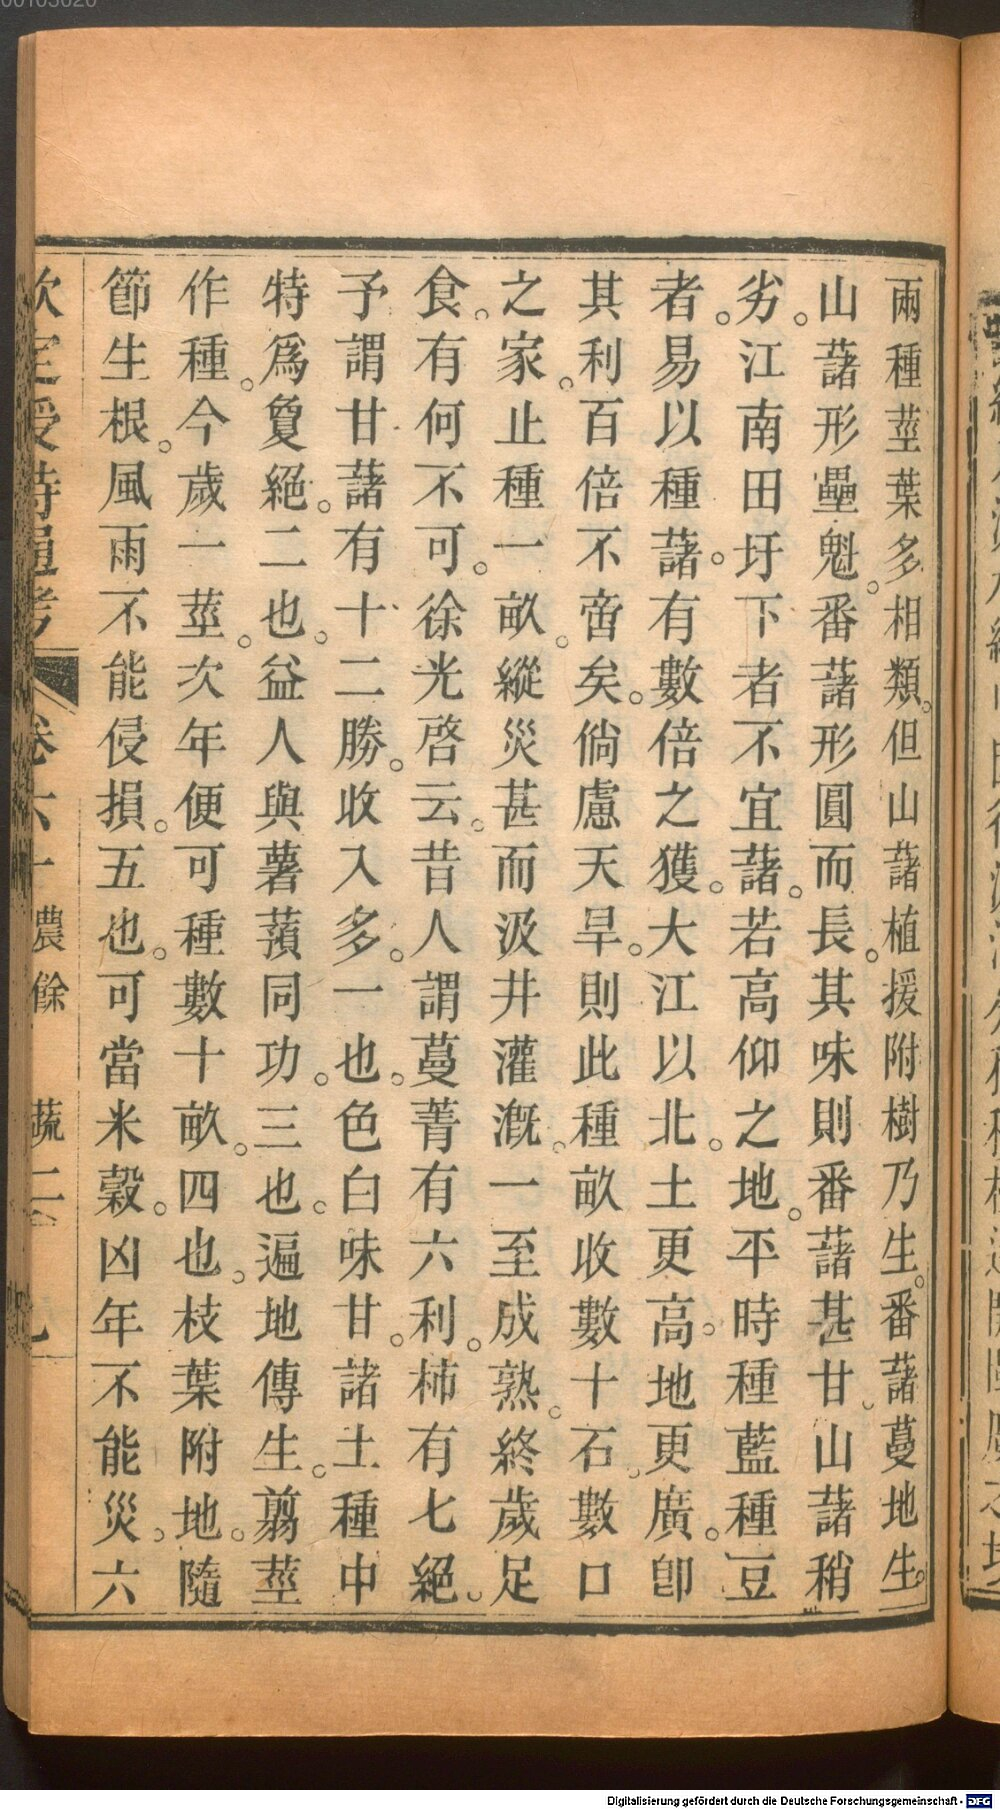 兩種莖葉多相類。但山藷植援附樹乃生。番藷蔓地生。
山藷形壘魁。番藷形圓而長。其味則番藷甚甘。山藷稍
劣。江南田圩下者不宜藷。若高仰之地。平時種藍種豆
者。易以種藷。有數倍之獲。大江以北。土更高。地更廣。卽
其利百倍不啻矣。倘慮天旱。則此種畝收數十石。數口
之家。止種一畝。縱災甚而汲井灌漑。一至成熟。終歲足
食。有何不可。徐光啓云。昔人謂蔓菁有六利。柿有七絕。
予謂甘藷有十二勝。收入多。一也。色白味甘。諸土種中
特爲夐絕。二也。益人與薯蕷同功。三也。遍地傳生。剪莖
作種。今歲一莖。次年便可種數十畝。四也。枝葉附地。隨
節生根。風雨不能侵損。五也。可當米穀。凶年不能災。六
欽定授時通考 卷六十 農餘 蔬二 九
Digitalisierung gefördert durch die Deutsche Forschungsgemeinschaft - DFG